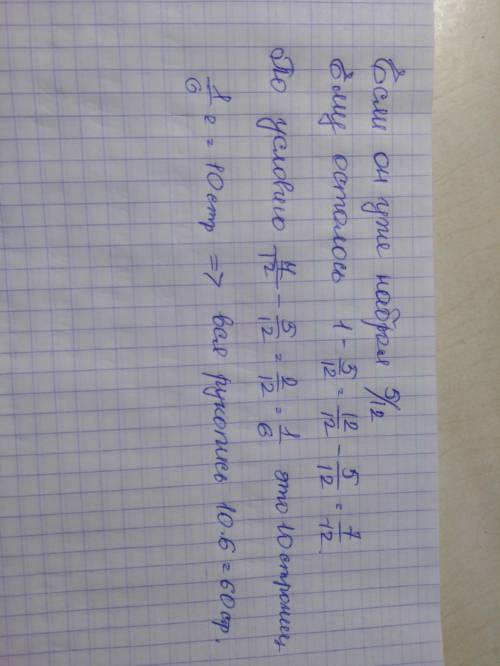 Если он уже набрал 5/12
Ему осталось 1 - 5/12 = 12/12 - 5/12 = 7/12.
По условию 7/12 - 5/12 = 2/12 = 1/6 это 10 страниц
1/6 = 10 стр => вся рукопись 10·6=60стр.